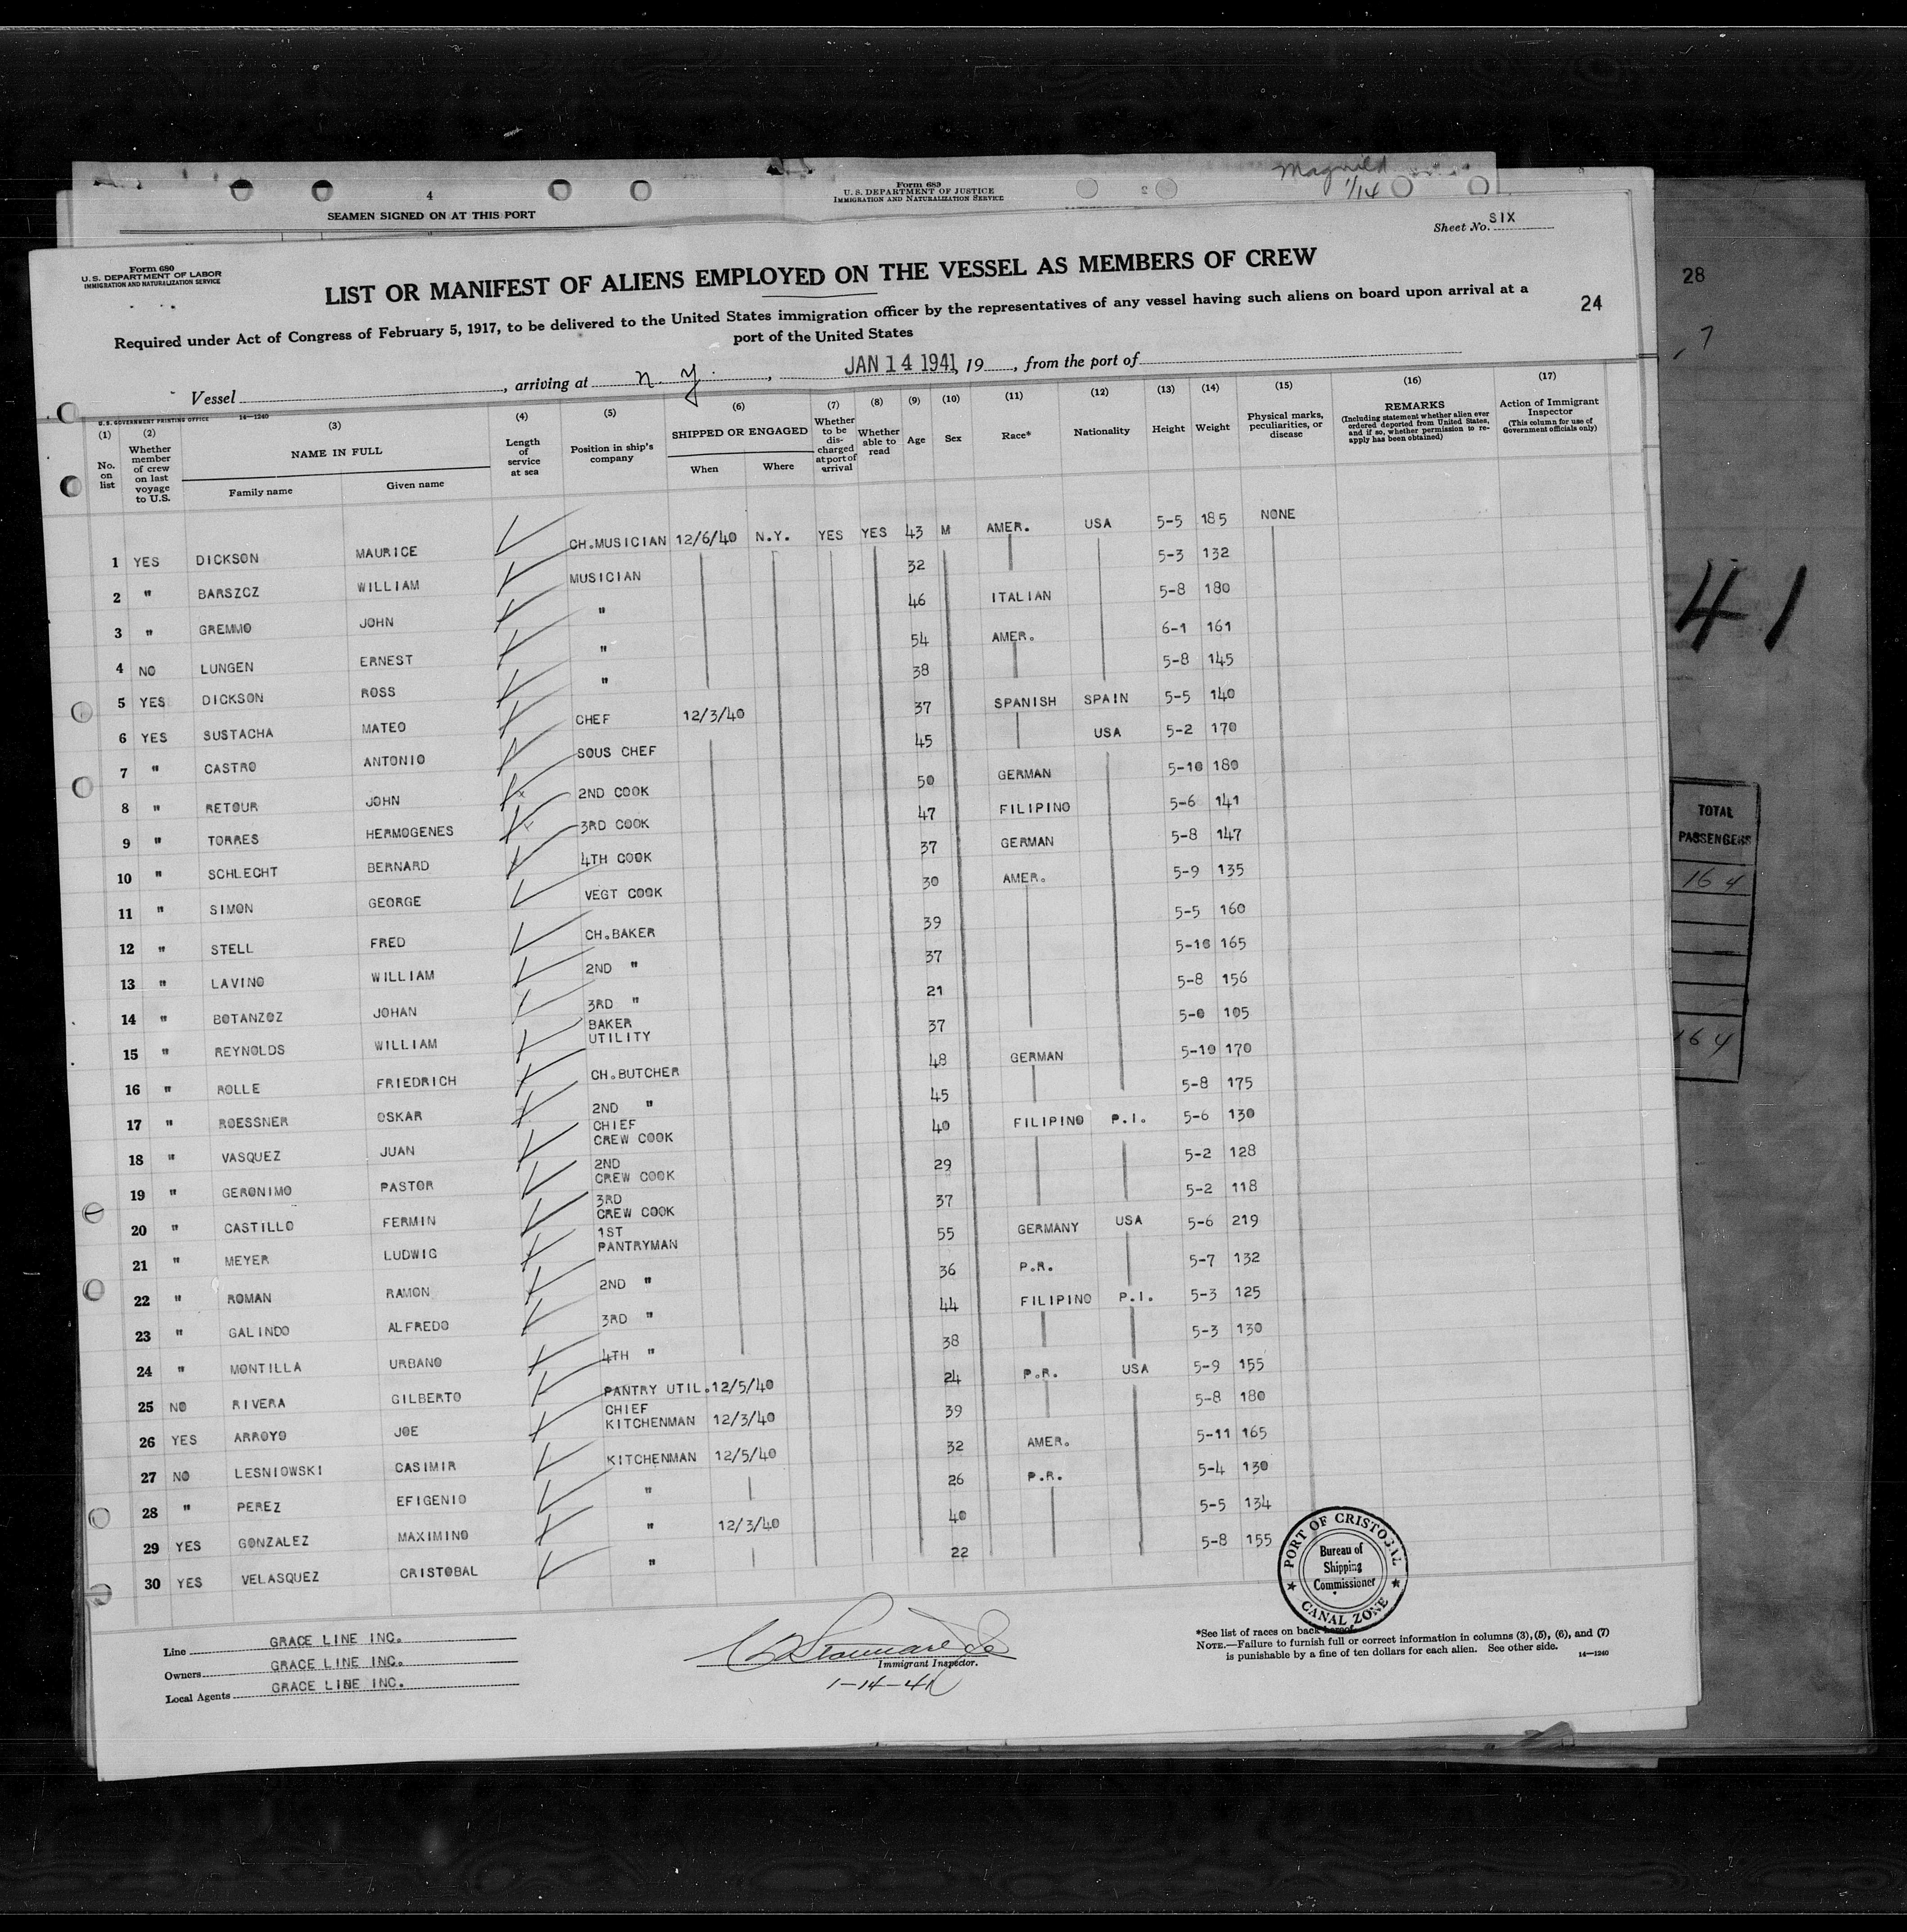 Magnild
1/14
4
SEAMEN SIGNED ON AT THIS PORT
Form 689
U. S. DEPARTMENT OF JUSTICE
IMMIGRATION AND NATURALIZATION SERVICE
2
Sheet No. SIX
Form 680
U. S. DEPARTMENT OF LABOR
IMMIGRATION AND NATURALIZATION SERVICE
LIST OR MANIFEST OF ALIENS EMPLOYED ON THE VESSEL AS MEMBERS OF CREW
28
24
Required under Act of Congress of February 5, 1917, to be delivered to the United States immigration officer by the representatives of any vessel having such aliens on board upon arrival at a
port of the United States
7
Vessel , arriving at N. Y. , JAN 14 1941, 19 , from the port of
U. S. GOVERNMENT PRINTING OFFICE 14—1240
(1) (2) (3) (4) (5) (6) (7) (8) (9) (10) (11) (12) (13) (14) (15) (16) (17)
No. on list
Whether member of crew on last voyage to U.S.
NAME IN FULL
Family name Given name
Length of service at sea
Position in ship's company
SHIPPED OR ENGAGED
When Where
Whether to be discharged at port of arrival
Whether able to read
Age
Sex
Race*
Nationality
Height
Weight
Physical marks, peculiarities, or disease
REMARKS
(Including statement whether alien ever ordered deported from United States, and if so, whether permission to reapply has been obtained)
Action of Immigrant Inspector
(This column for use of Government officials only)
1 YES DICKSON MAURICE CH.MUSICIAN 12/6/40 N.Y. YES YES 43 M AMER. USA 5-5 185 NONE
2 " BARSZCZ WILLIAM MUSICIAN 32 5-3 132
3 " GREMMO JOHN " 46 ITALIAN 5-8 180
4 NO LUNGEN ERNEST " 54 AMER. 6-1 161
5 YES DICKSON ROSS " 38 5-8 145
6 YES SUSTACHA MATEO CHEF 12/3/40 37 SPANISH SPAIN 5-5 140
7 " CASTRO ANTONIO SOUS CHEF 45 USA 5-2 170
8 " RETOUR JOHN 2ND COOK 50 GERMAN 5-10 180
9 " TORRES HERMOGENES 3RD COOK 47 FILIPINO 5-6 141
10 " SCHLECHT BERNARD 4TH COOK 37 GERMAN 5-8 147
11 " SIMON GEORGE VEGT COOK 30 AMER. 5-9 135
12 " STELL FRED CH.BAKER 39 5-5 160
13 " LAVINO WILLIAM 2ND " 37 5-10 165
14 " BOTANZOZ JOHAN 3RD " 21 5-8 156
15 " REYNOLDS WILLIAM BAKER UTILITY 37 5-0 105
16 " ROLLE FRIEDRICH CH.BUTCHER 48 GERMAN 5-10 170
17 " ROESSNER OSKAR 2ND " 45 5-8 175
18 " VASQUEZ JUAN CHIEF CREW COOK 40 FILIPINO P.I. 5-6 130
19 " GERONIMO PASTOR 2ND CREW COOK 29 5-2 128
20 " CASTILLO FERMIN 3RD CREW COOK 37 5-2 118
21 " MEYER LUDWIG 1ST PANTRYMAN 55 GERMANY USA 5-6 219
22 " ROMAN RAMON 2ND " 36 P.R. 5-7 132
23 " GALINDO ALFREDO 3RD " 44 FILIPINO P.I. 5-3 125
24 " MONTILLA URBANO 4TH " 38 5-3 130
25 NO RIVERA GILBERTO PANTRY UTIL. 12/5/40 24 P.R. USA 5-9 155
26 YES ARROYO JOE CHIEF KITCHENMAN 12/3/40 39 5-8 180
27 NO LESNIOWSKI CASIMIR KITCHENMAN 12/5/40 32 AMER. 5-11 165
28 " PEREZ EFIGENIO " 26 P.R. 5-4 130
29 YES GONZALEZ MAXIMINO " 12/3/40 40 5-5 134
30 YES VELASQUEZ CRISTOBAL " 22 5-8 155
41
TOTAL
PASSENGERS
164
164
PORT OF CRISTOBAL
Bureau of
Shipping
Commissioner
CANAL ZONE
Line GRACE LINE INC.
Owners GRACE LINE INC.
Local Agents GRACE LINE INC.
Immigrant Inspector.
1-14-41
*See list of races on back hereof.
NOTE.—Failure to furnish full or correct information in columns (3), (5), (6), and (7)
is punishable by a fine of ten dollars for each alien. See other side.
14—1240